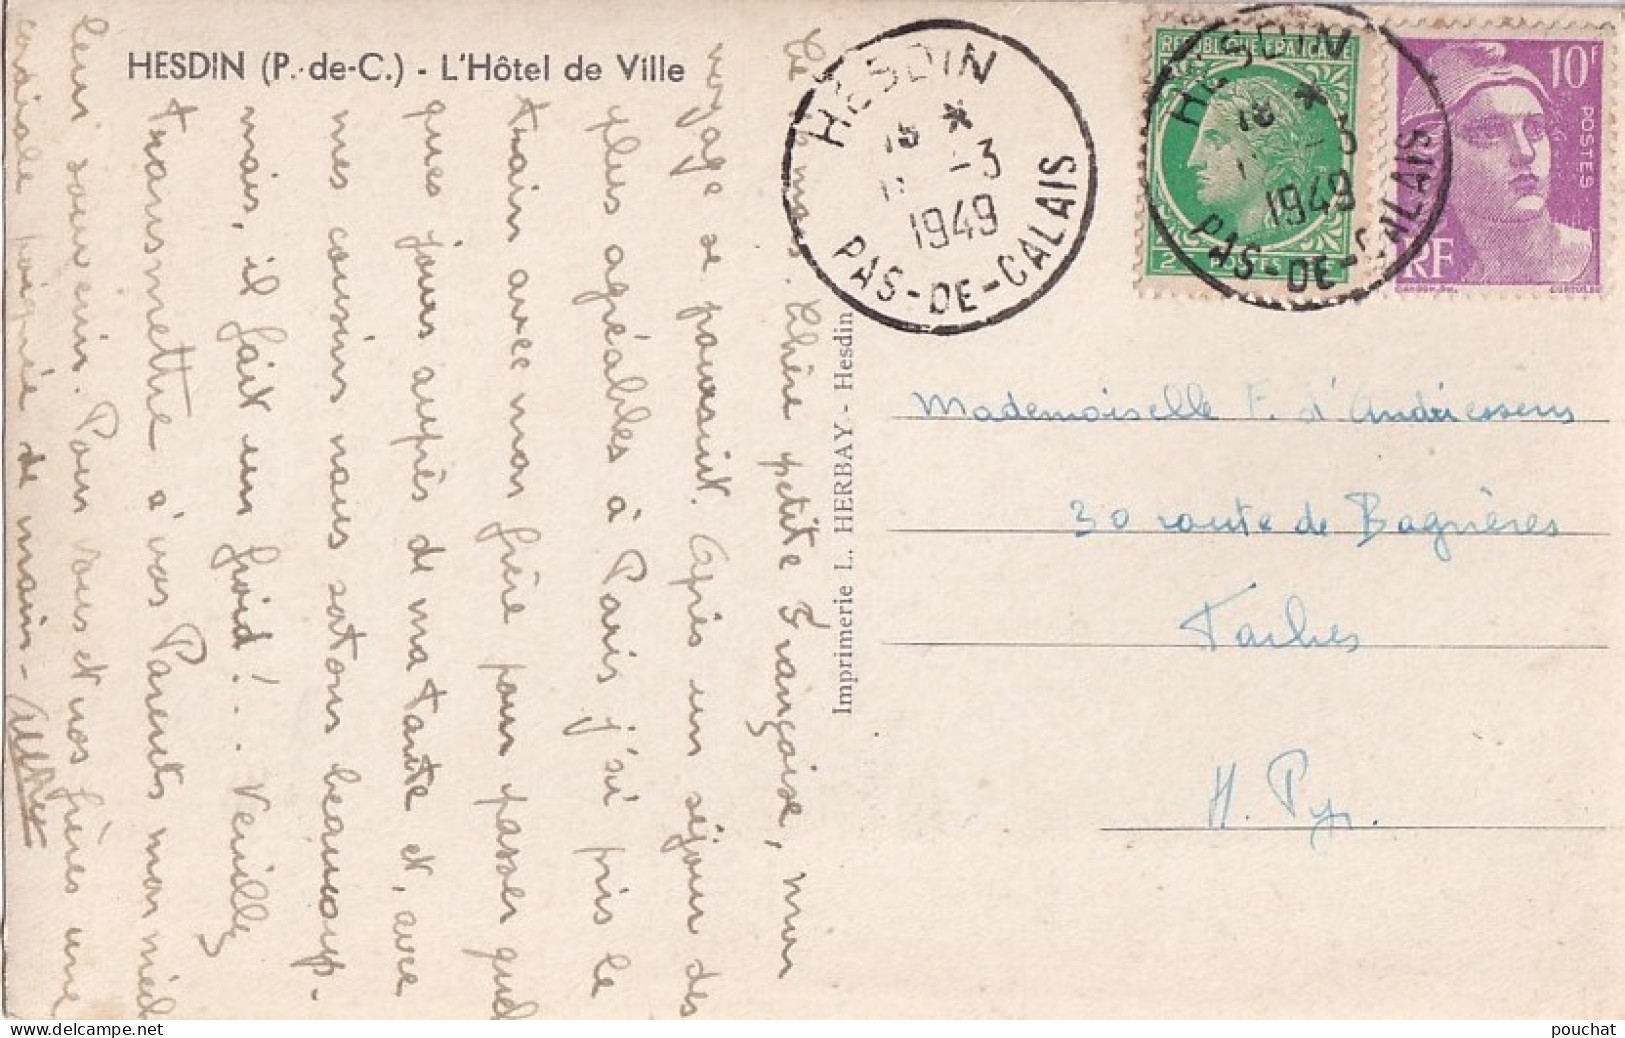 HESDIN (P.-de-C.) - L'Hôtel de Ville
Ce mars. Chère petite Françoise, mon
voyage se poursuit. Après un séjour des
plus agréables à Paris j'ai pris le
train avec mon frère pour passer quel
ques jours auprès de ma tante et, avec
mes cousins nous sortons beaucoup.
mais, il fait un froid!.. Veuillez
transmettre à vos Parents mon meil
leur souvenir. Pour vous et vos frères une
cordiale poignée de main -
Imprimerie L. HERBAY - Hesdin
HESDIN
18 *
-3
1949
PAS-DE-CALAIS
REPUBLIQUE FRANCAISE
2F POSTES
HESDIN
18 *
-3
1949
PAS-DE-CALAIS
10F
POSTES
RF
Mademoiselle F. d'Andriessens
30 route de Bagnères
Tarbes
H. Pyr.
pouchat